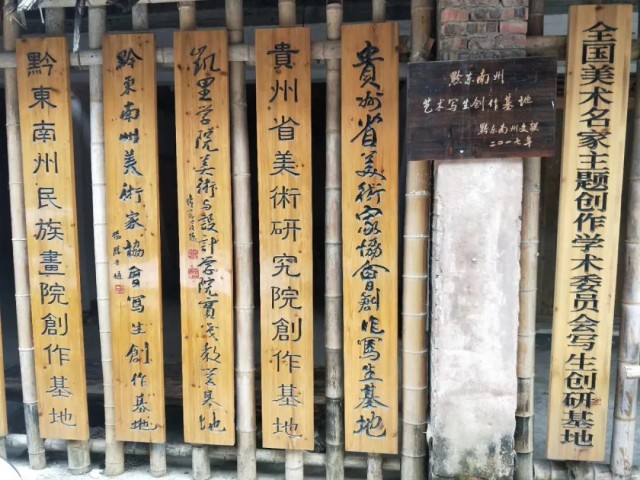 黔東南州民族畫院創作基地
黔東南州美術家協會写生創作基地
凱里学院美術与設計学院實践教美基地
貴州省美術研究院創作基地
貴州省美術家協會創作寫生基地
黔东南州
艺术写生创作基地
黔东南州文联
二〇一七年
全国美术名家主题创作学术委员会写生创研基地